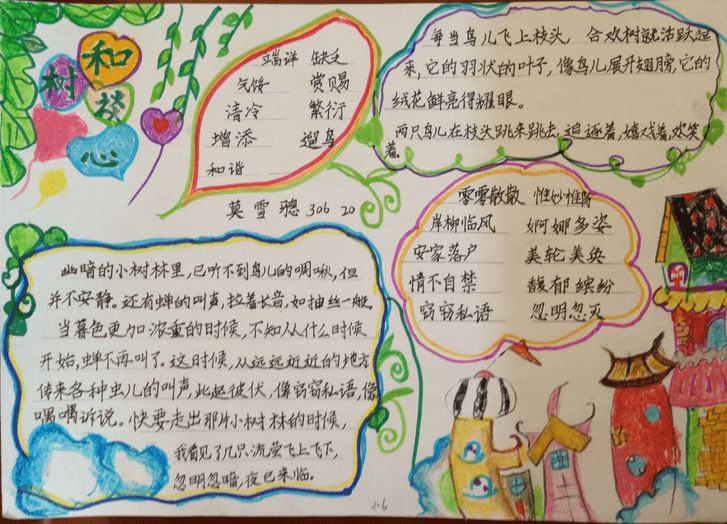 树
和
禁
心
端详 缺乏
气馁 赏赐
清冷 繁衍
增添 遛鸟
和谐
莫雪骢 306 20
每当鸟儿飞上枝头 合欢树就活跃起
来,它的羽状的叶子,像鸟儿展开翅膀,它的
绒花鲜亮得耀眼。
两只鸟儿在枝头跳来跳去,追逐着,嬉戏着,欢笑
着。
零零散散 惟妙惟肖
岸柳临风 婀娜多姿
安家落户 美轮美奂
情不自禁 馥郁缤纷
窃窃私语 忽明忽灭
幽暗的小树林里,已听不到鸟儿的啁啾,但
并不安静。还有蝉的叫声,拉着长音,如抽丝一般。
当暮色更加浓重的时候,不知从什么时候
开始,蝉不再叫了。这时候,从远远近近的地方
传来各种虫儿的叫声,此起彼伏,像窃窃私语,像
喁喁诉说。快要走出那片小树林的时候,
我看见了几只流萤飞上飞下,
忽明忽暗,夜已来临。
306